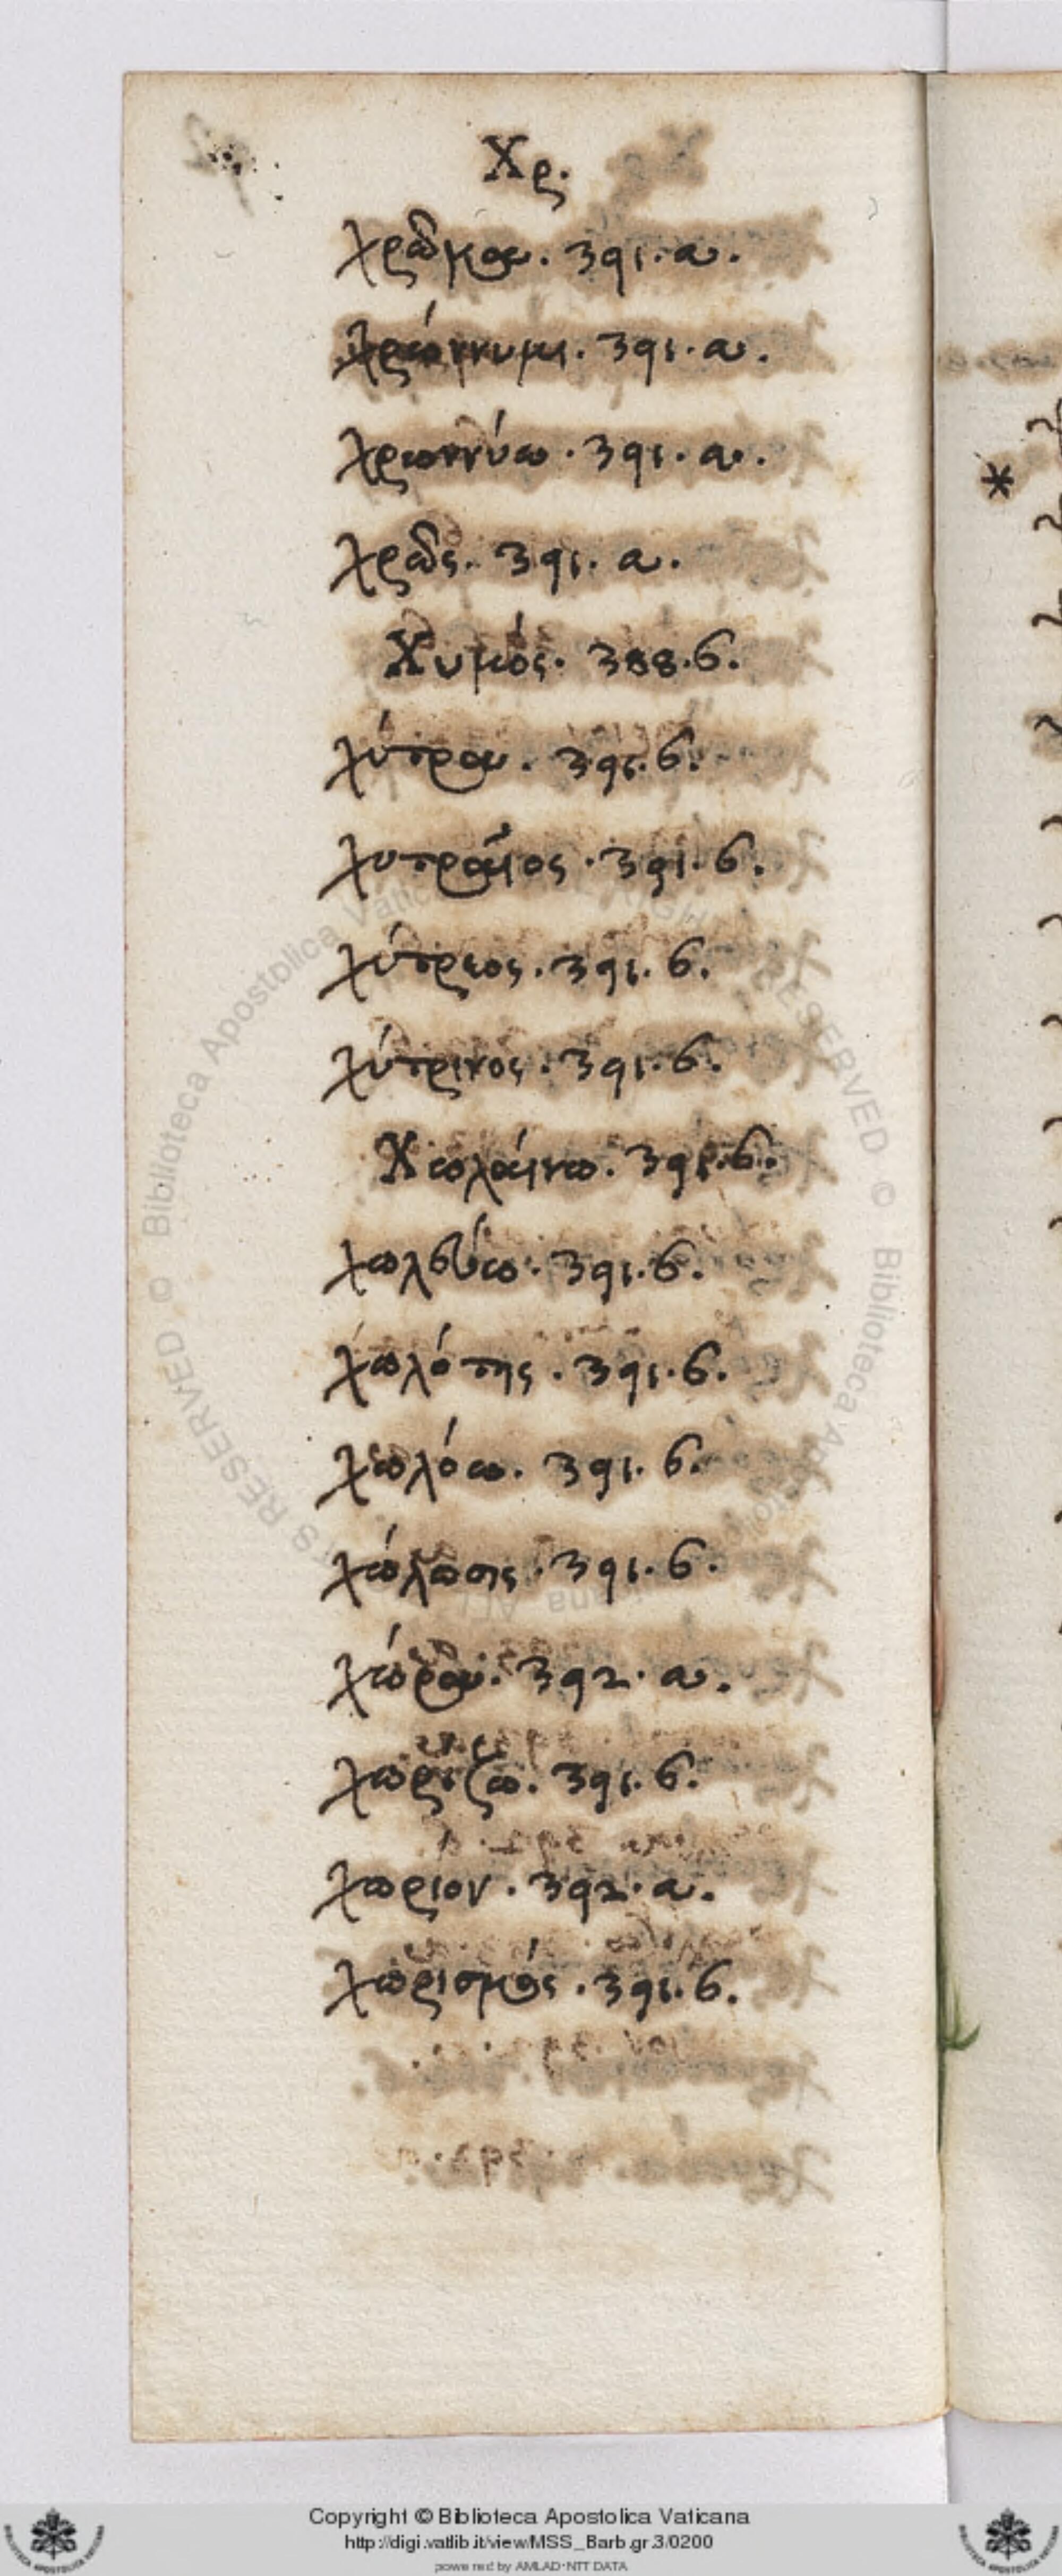 Χρ.
χρῶμα. 391. α.
χρώννυμι. 391. α.
χρωννύω. 391. α.
χρῶς. 391. α.
Χυμός. 388. 6.
χύτρα. 391. 6.
χυτραῖος. 391. 6.
χύτρεος. 391. 6.
χύτρινος. 391. 6.
Χωλαίνω. 391. 6.
χωλεύω. 391. 6.
χωλότης. 391. 6.
χωλόω. 391. 6.
χώλωσις. 391. 6.
χώρα. 392. α.
χωρίζω. 391. 6.
χωριον. 392. α.
χωρισμός. 391. 6.
Copyright © Biblioteca Apostolica Vaticana
http://digi.vatlib.it/view/MSS_Barb.gr.3/0200
powered by AMLAD-NTT DATA